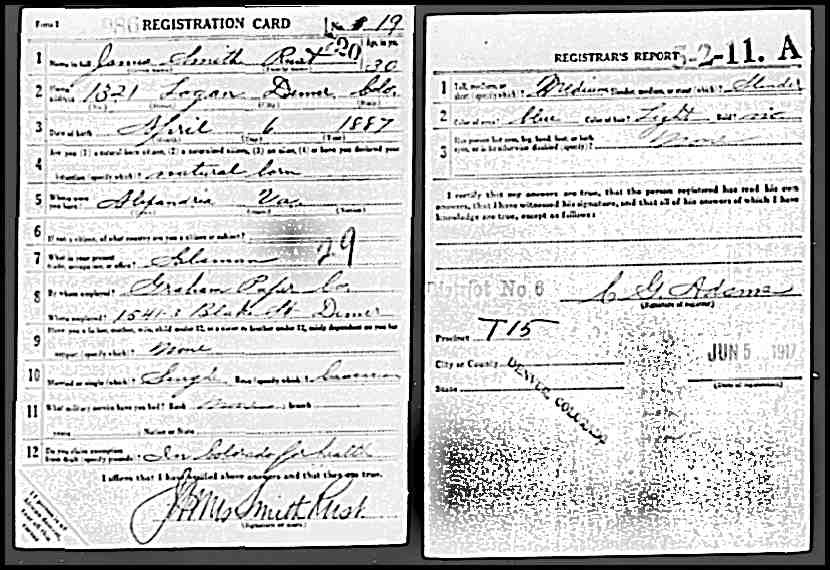 Form 1 986 REGISTRATION CARD No. 19
1 Name in full James Smith Rust Age, in yrs. 30
2 Home address 1321 Logan Denver Colo.
3 Date of birth April 6 1887
4 Are you (1) a natural born citizen, (2) a naturalized citizen, (3) an alien, (4) or have you declared your
intention (specify which)? natural born
5 Where were you born? Alexandria Va.
6 If not a citizen, of what country are you a citizen or subject?
7 What is your present trade, occupation, or office? Salesman 29
8 By whom employed? Graham Paper Co
Where employed? Blake St Denver
9 Have you a father, mother, wife, child under 12, or a sister or brother under 12, solely dependent on you for
support (specify which)? None
10 Married or single (which)? Single Race (specify which)? Caucasian
11 What military service have you had? Rank None branch
years Nation or State
12 Do you claim exemption from draft (specify grounds)? In Colorado for health
I affirm that I have verified above answers and that they are true.
James Smith Rust
(Signature or mark)
REGISTRAR'S REPORT 5-2-11. A
1 Tall, medium, or short (specify which)? Medium Slender, medium, or stout (which)? Slender
2 Color of eyes? blue Color of hair? Light Bald? no
3 Has person lost arm, leg, hand, foot, or both eyes, or is he otherwise disabled (specify)? None
I certify that my answers are true, that the person registered has read his own
answers, that I have witnessed his signature, and that all of his answers of which I have
knowledge are true, except as follows:
District No 6 C G. Adams
(Signature of registrar)
Precinct T15
City or County DENVER, COLORADO JUN 5 1917
State (Date of registration)